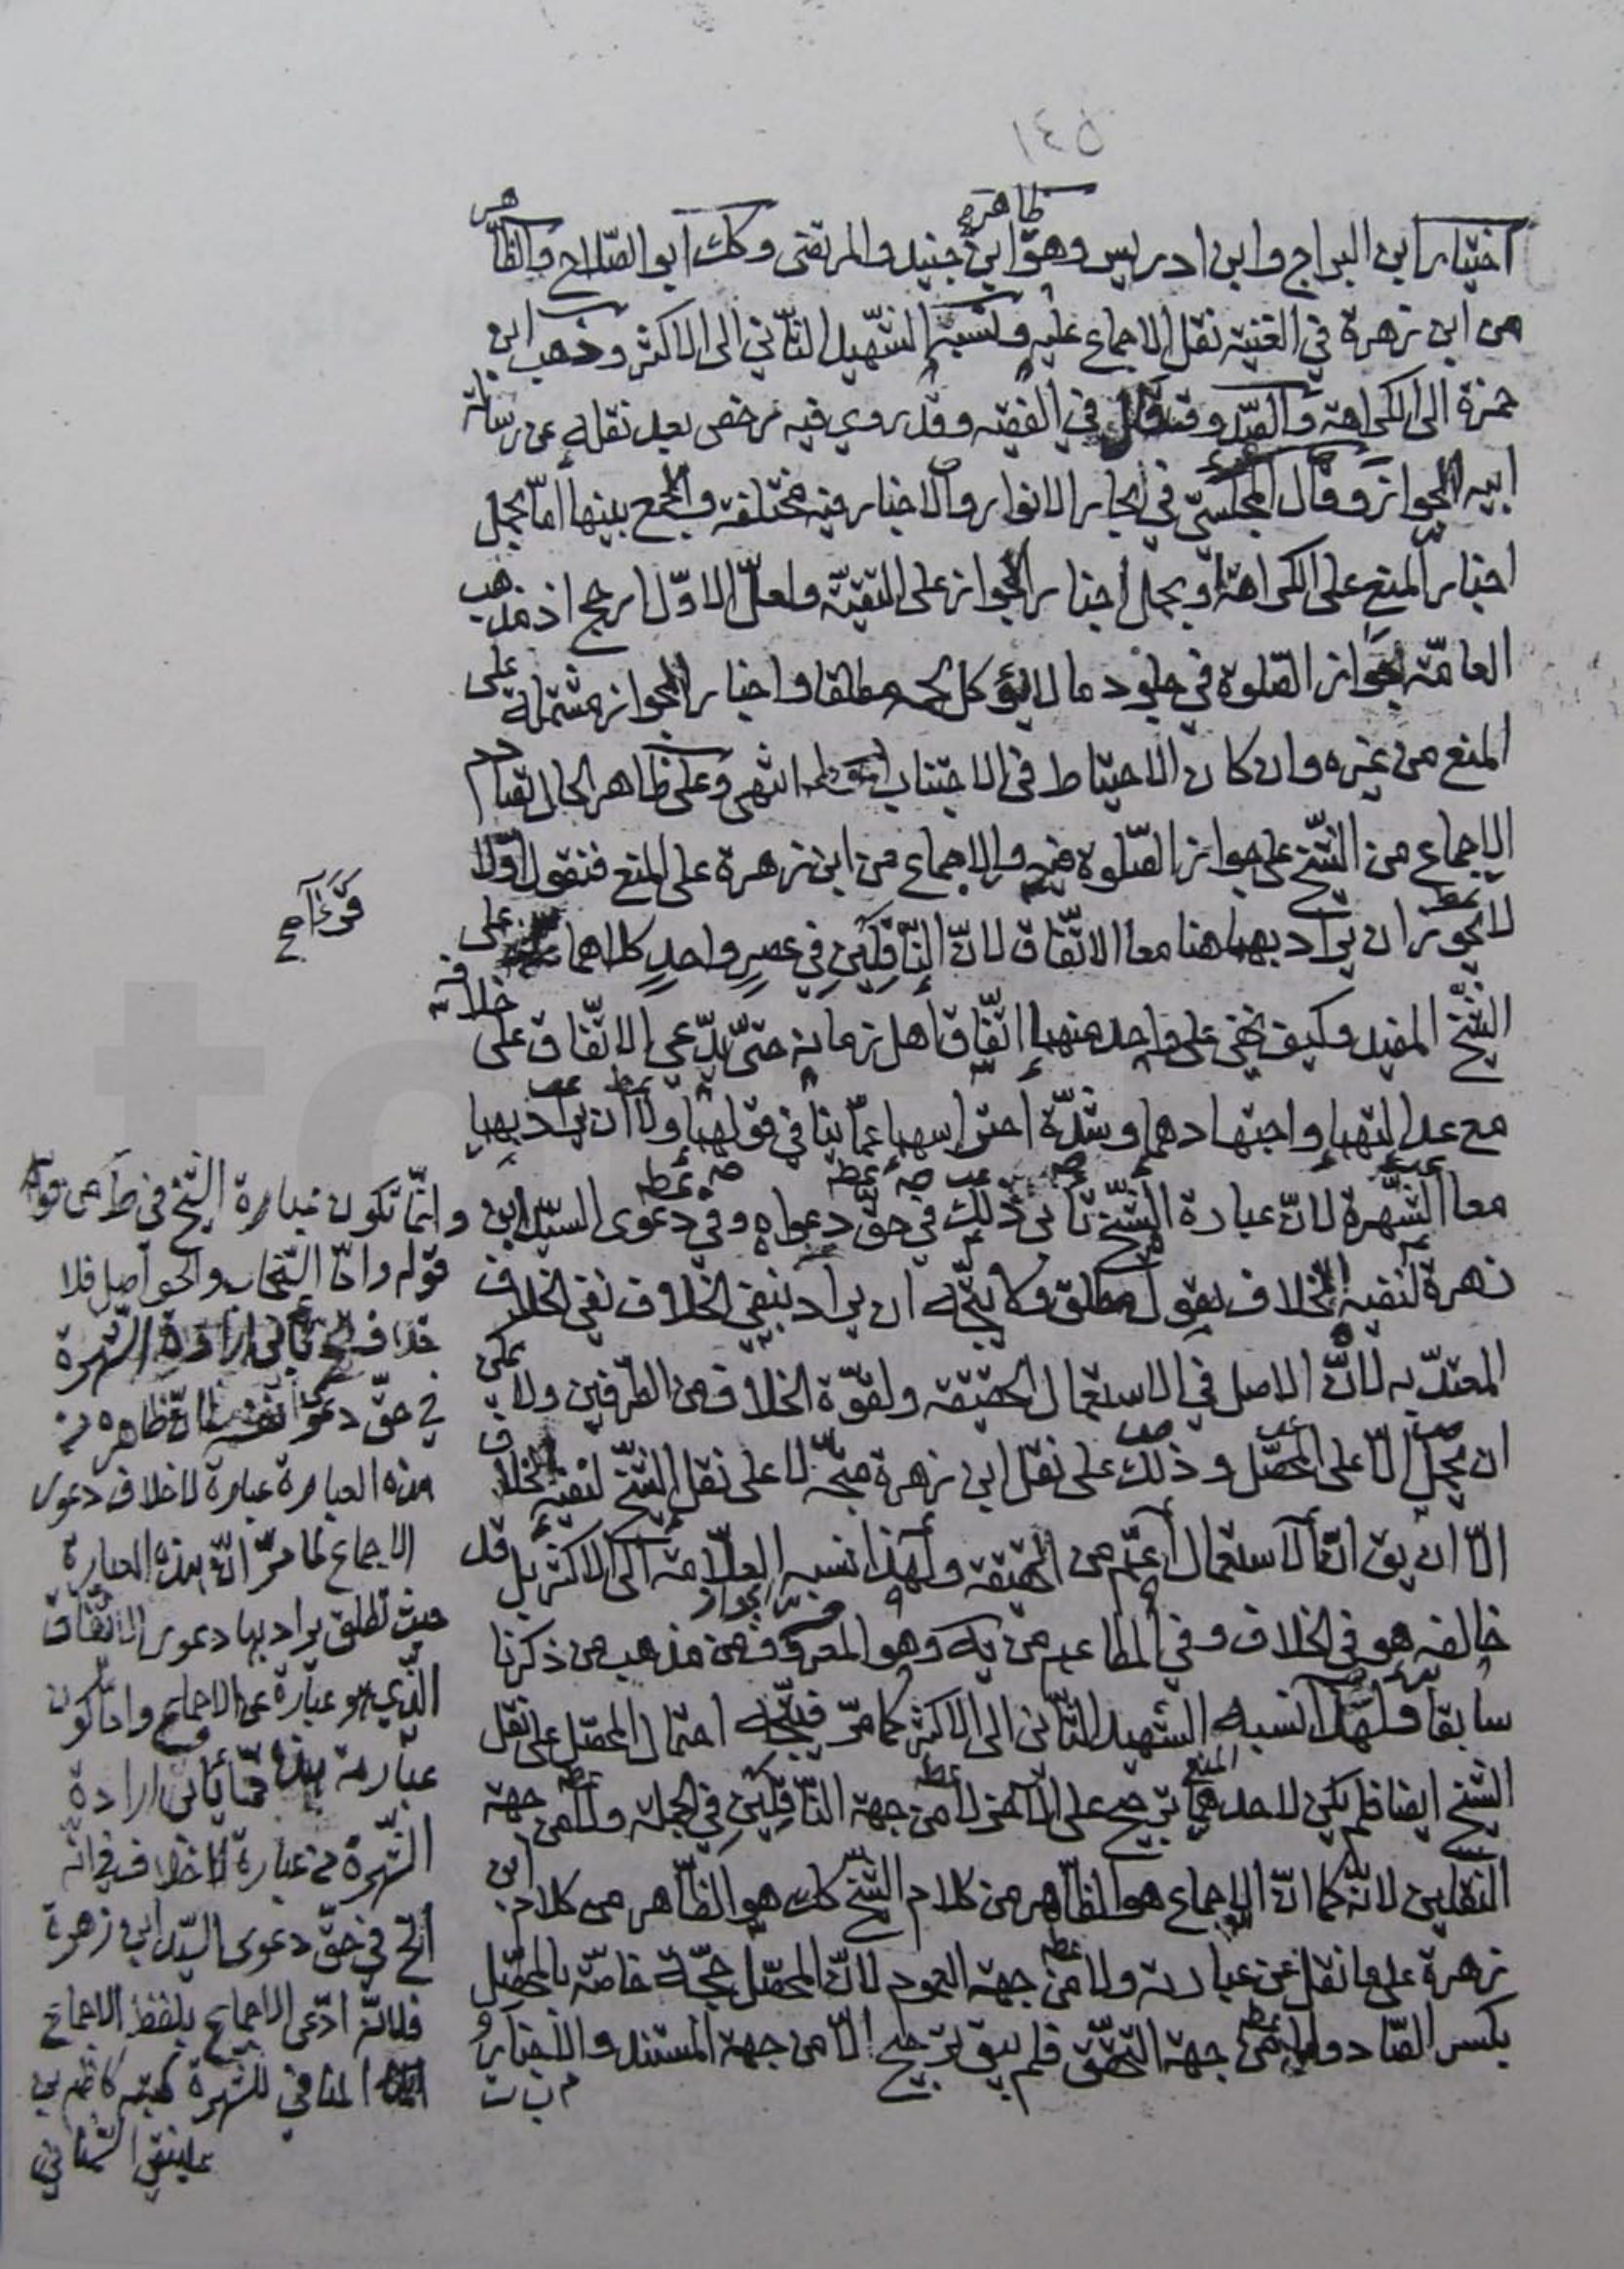 ١٤٥
اختيار ابن البراج وابن ادريس وهو ظاهر ابن جنيد والمرتضى وكك ابو الصّلاح والظاهر
من ابن زهرة في الغنية نقل الاجماع عليه ونسبه الشّهيد الثّاني الى الاكثر وذهب ابن
حمزة الى الكراهة والصّدوق قال في الفقيه وقد روي فيه رخص بعد نقله عن رسالة
ابيه الجواز وقال المجلسيّ في بحار الانوار والاخبار فيه مختلفة والجمع بينها امّا بحمل
اخبار المنع على الكراهة او بحمل اخبار الجواز على التقيّة ولعلّ الاوّل ارجح اذ مذهب
العامّة جواز الصّلوة في جلود ما لا يؤكل لحمه مطلقا واخبار الجواز مشتملة على
المنع من غيره وان كان الاحتياط في الاجتناب انتهى وعلى ظاهر الحال تصادم
الاجماع من الشّيخ على جواز الصّلوة فيه والاجماع من ابن زهرة على المنع فنقول اوّلا
لا يجوز ان يراد بهما هنا معا الاتّفاق لانّ النّاقلَين في عصرٍ واحدٍ كلاهما
الشّيخ المفيد وكيف يخفى على واحد منهما اتّفاق اهل زمانه حتّى يدّعي الاتّفاق على خلافه
مع عدالتهما واجتهادهما وشدّة احتراسهما عمّا ينافي قولهما ولا ان يراد بهما
معا الشّهرة لانّ عبارة الشّيخ تأبى ذلك في حقّ دعواه وفي دعوى السيّد ابن
زهرة لنفيه الخلاف بقول مطلق فلا يتّجه ان يراد بنفي الخلاف نفي الخلاف
المعتدّ به لانّ الاصل في الاستعمال الحقيقة ولقوّة الخلاف من الطّرفين ولا يمكن
ان يحمل الّا على المحصّل وذلك على نقل ابن زهرة متّجه لا على نقل الشّيخ لنفيه الخلاف
الّا ان يق انّ الاستعمال اعمّ من الحقيقة ولهذا نسبه العلّامة الى الاكثر بل قد
خالفه هو في الخلاف وفي المطاعم من يه وهو المعروف من مذهب من ذكرنا
سابقا ولهذا نسبه الشّهيد الثّاني الى الاكثر كما مرّ فيتّجه احتمال المحصّل على نقل
الشّيخ ايضا فلم يكن لاحدهما ترجيح على الآخر لا من جهة النّاقلَين في الجملة ولا من جهة
النقلين لانّه كما انّ الاجماع هو الظّاهر من كلام الشّيخ كك هو الظّاهر من كلام ابن
زهرة على ما نقل عن عبارته ولا من جهة العموم لانّ المحصّل حجّة خاصّة بالمحصّل
بكسر الصّاد ولا من جهة التحقّق فلم يبق ترجيح الّا من جهة المستند والاخبار و
وانّما تكون عبارة الشّيخ في ط من قوله
قوله وامّا السّنجاب والحواصل فلا
خلاف الخ تأبى ارادة الشّهرة
في حقّ دعوى نفسه لانّ ظاهره من
هذه العبارة عبارة لا خلاف دعوى
الاجماع لما مرّ انّ هذه العبارة
حيث تطلق يراد بها دعوى الاتّفاق
الّذي هو عبارة عن الاجماع وامّا كون
عبارته هذه ممّا تأبى ارادة
الشّهرة من عبارة لا خلاف
الخ في حقّ دعوى السيّد ابن زهرة
فلانّه ادّعى الاجماع بلفظ الاجماع
المنافي للشّهرة